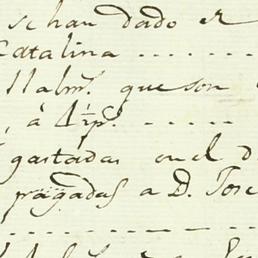 se han dado a
Catalina - - - - - - -
Halm.s que son
, á 4½ p.s - - - - -
gastadas en el d
pagadas a D. Jose
- - - - - - - - - - -